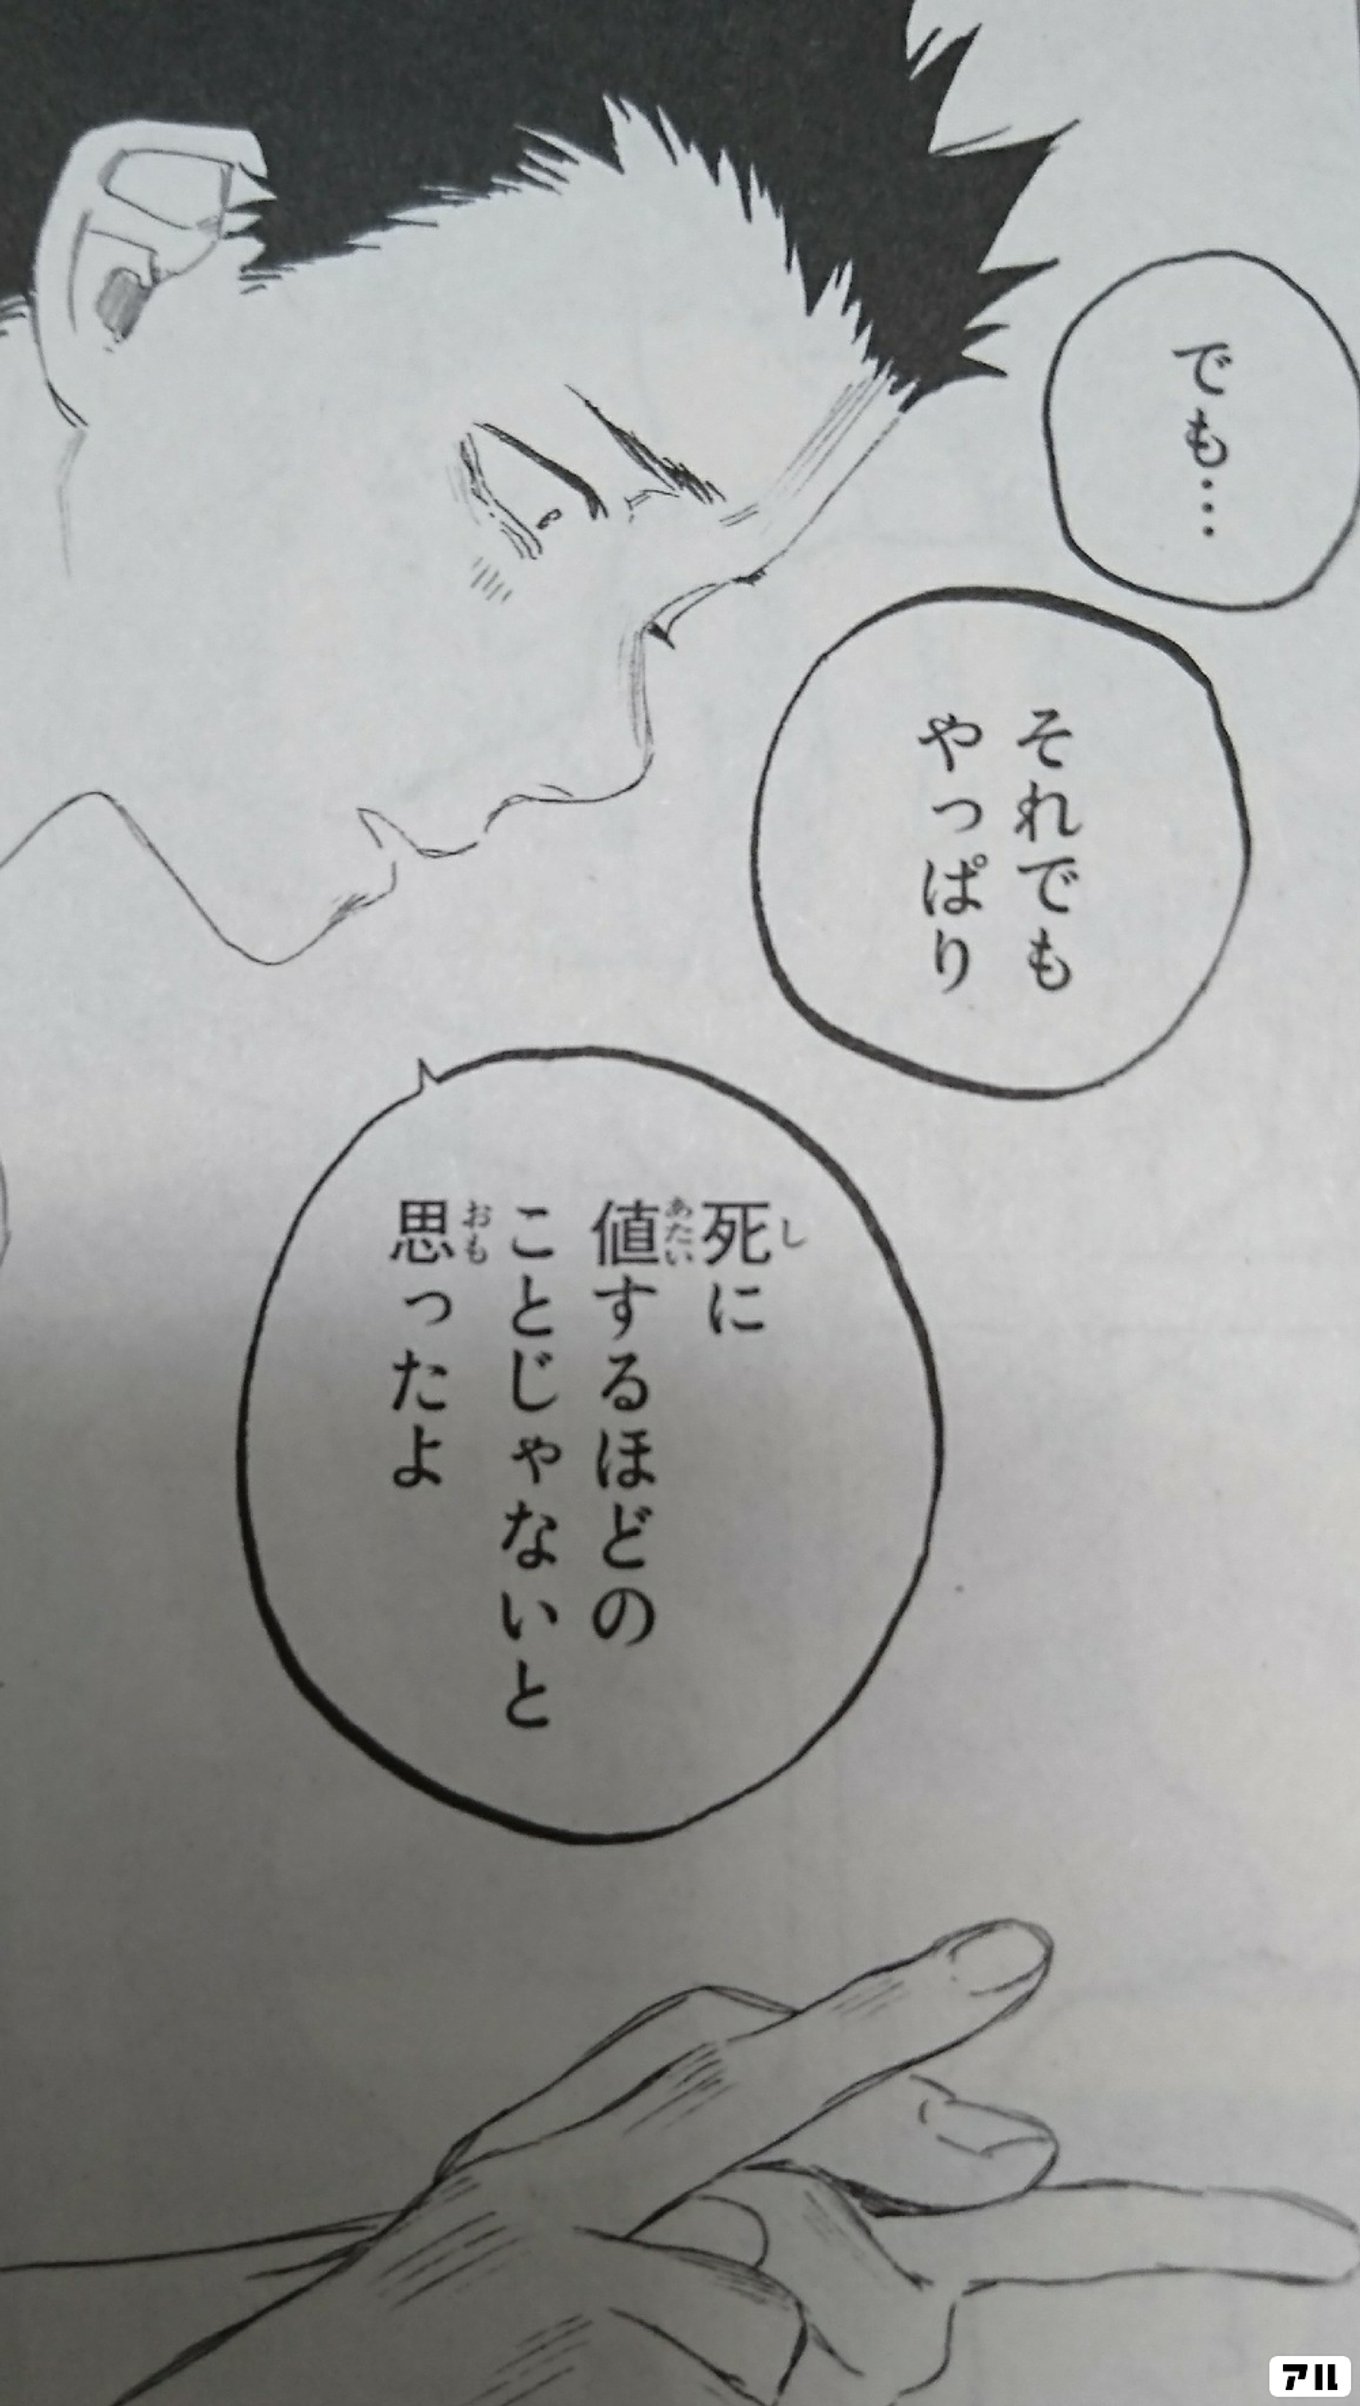 でも…
それでも
やっぱり
死に
値するほどの
ことじゃないと
思ったよ
し
あたい
おも
アル